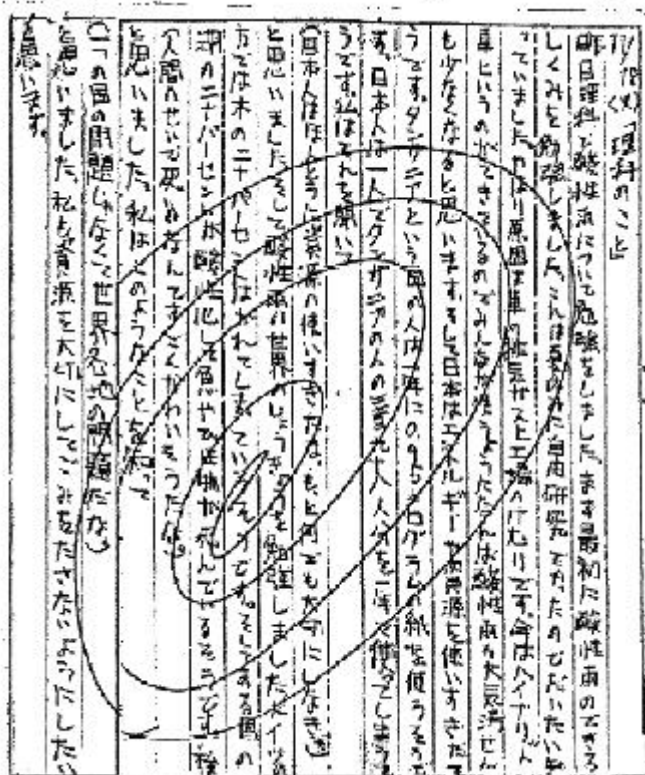 (火)「理科のこと」
昨日理科で酸性雨について勉強をしました。まず最初に酸性雨のできる
しくみを勉強しました。これは夏休みに自由研究でやったのでだいたい
っていました。やはり原因は車の排気ガスと工場のけむりです。今はハイブリット
車というのができているのでみんなが使うようたら酸性雨や大気
も少なくなると思います。そして日本はエネルギーや資源を使いすぎだ
うです。タンザニアという国の人は一年に キログラムの紙を使うそうで
す。日本人は一人でタンザニアの人の 人分を一年で使ってしまう
うです。私はそれを聞いて
(日本人はほんとうに資源の使いすぎだな。もっと何でも大切にしなきゃ)
と思いました。そして酸性雨の世界のじょうきょうを勉強しました。ドイツの
方では木の二十パーセントはかれてしまっているそうです。そしてある国の
湖の パーセントが酸性化して魚や生物が死んでいるそうです。
(人間のせいで死ぬなんてすごくかわいそうだな。)
と思いました。私はこのようなことを知って
(一つの国の問題じゃなくて世界各地の問題だな)
と思いました。私も資源を大切にしてごみをださないようにしたい
と思います。